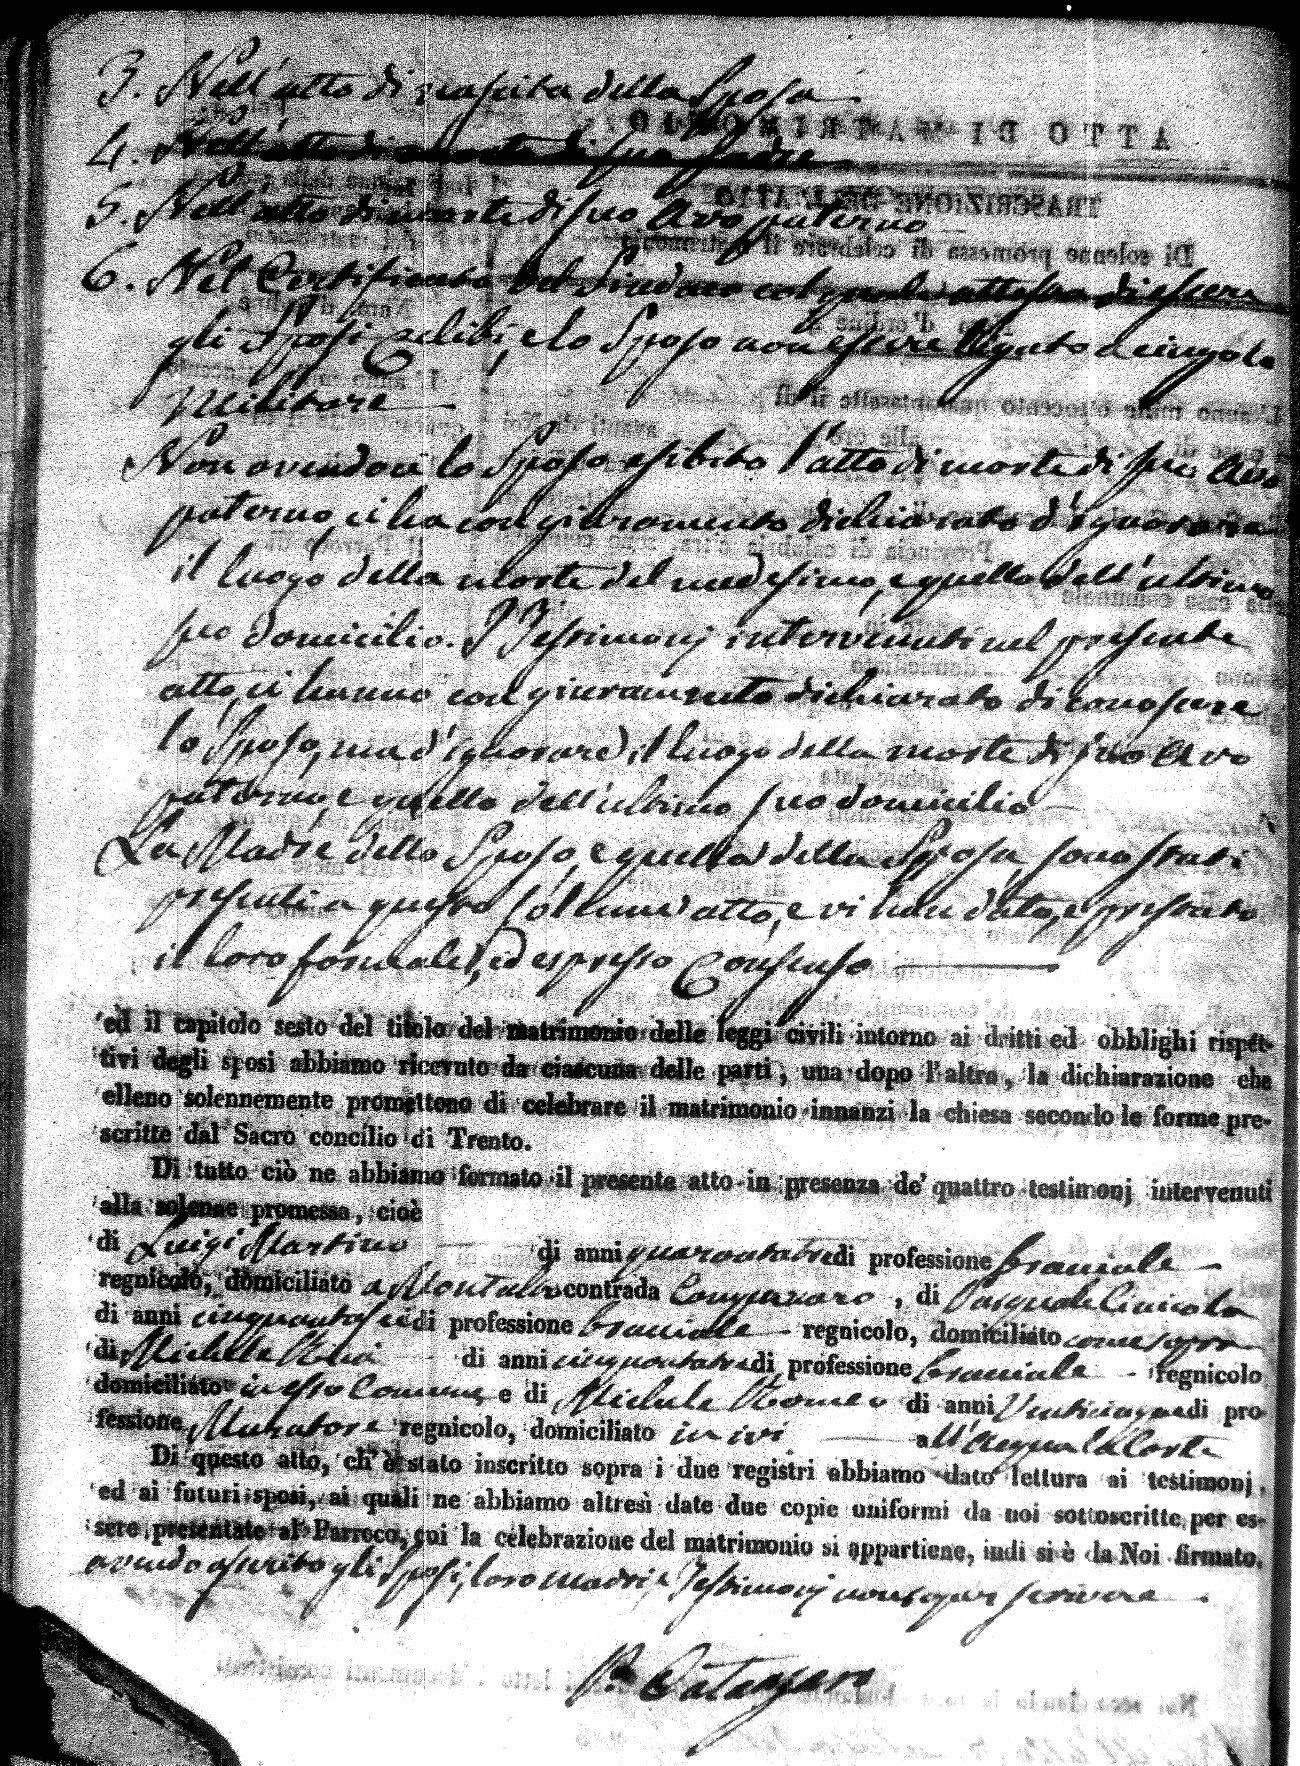 3. Nell'atto di nascita della Sposa
4. Nell'atto di morte di suo Padre
5. Nell'atto di morte di suo Avo paterno
6. Nel Certificato del Sindaco col quale attesta di essere
gli Sposi celibi, e lo Sposo non essere ligato a cingolo
Militare
Non avendoci lo Sposo esibito l'atto di morte di suo Avo
paterno, ci ha con giuramento dichiarato d'ignorare
il luogo della morte del medesimo, e quello dell'ultimo
suo domicilio. I Testimonj intervenuti nel presente
atto, ci hanno con giuramento dichiarato di conoscere
lo Sposo, ma d'ignorare il luogo della morte di suo Avo
paterno, e quello dell'ultimo suo domicilio
La Madre dello Sposo, e quella della Sposa, sono stati
presenti a questo sollenne atto, e vi han dato, e prestato
il loro formale, ed espresso Consenso
ed il capitolo sesto del titolo del matrimonio delle leggi civili intorno ai dritti ed obblighi rispet-
tivi degli sposi abbiamo ricevuto da ciascuna delle parti, una dopo l'altra, la dichiarazione che
elleno solennemente promettono di celebrare il matrimonio innanzi la chiesa secondo le forme pre-
scritte dal Sacro concilio di Trento.
Di tutto ciò ne abbiamo formato il presente atto in presenza de' quattro testimonj intervenuti
alla solenne promessa, cioè
di Luigi Martino di anni quarantatre di professione braciale
regnicolo, domiciliato a Montalto contrada , di Pasquale
di anni cinquantasei di professione braciale regnicolo, domiciliato come sopra
di Michele di anni cinquantatre di professione braciale regnicolo
domiciliato in esso Comune, e di Michele Romeo di anni Venticinque di pro-
fessione Muratore regnicolo, domiciliato in ivi all'Acqua
Di questo atto, ch'è stato inscritto sopra i due registri abbiamo dato lettura ai testimonj,
ed ai futuri sposi, ai quali ne abbiamo altresì date due copie uniformi da noi sottoscritte per es-
sere presentate al Parroco, cui la celebrazione del matrimonio si appartiene, indi si è da Noi firmato,
avendo asserito gli Sposi, loro madri e Testimonj non saper scrivere